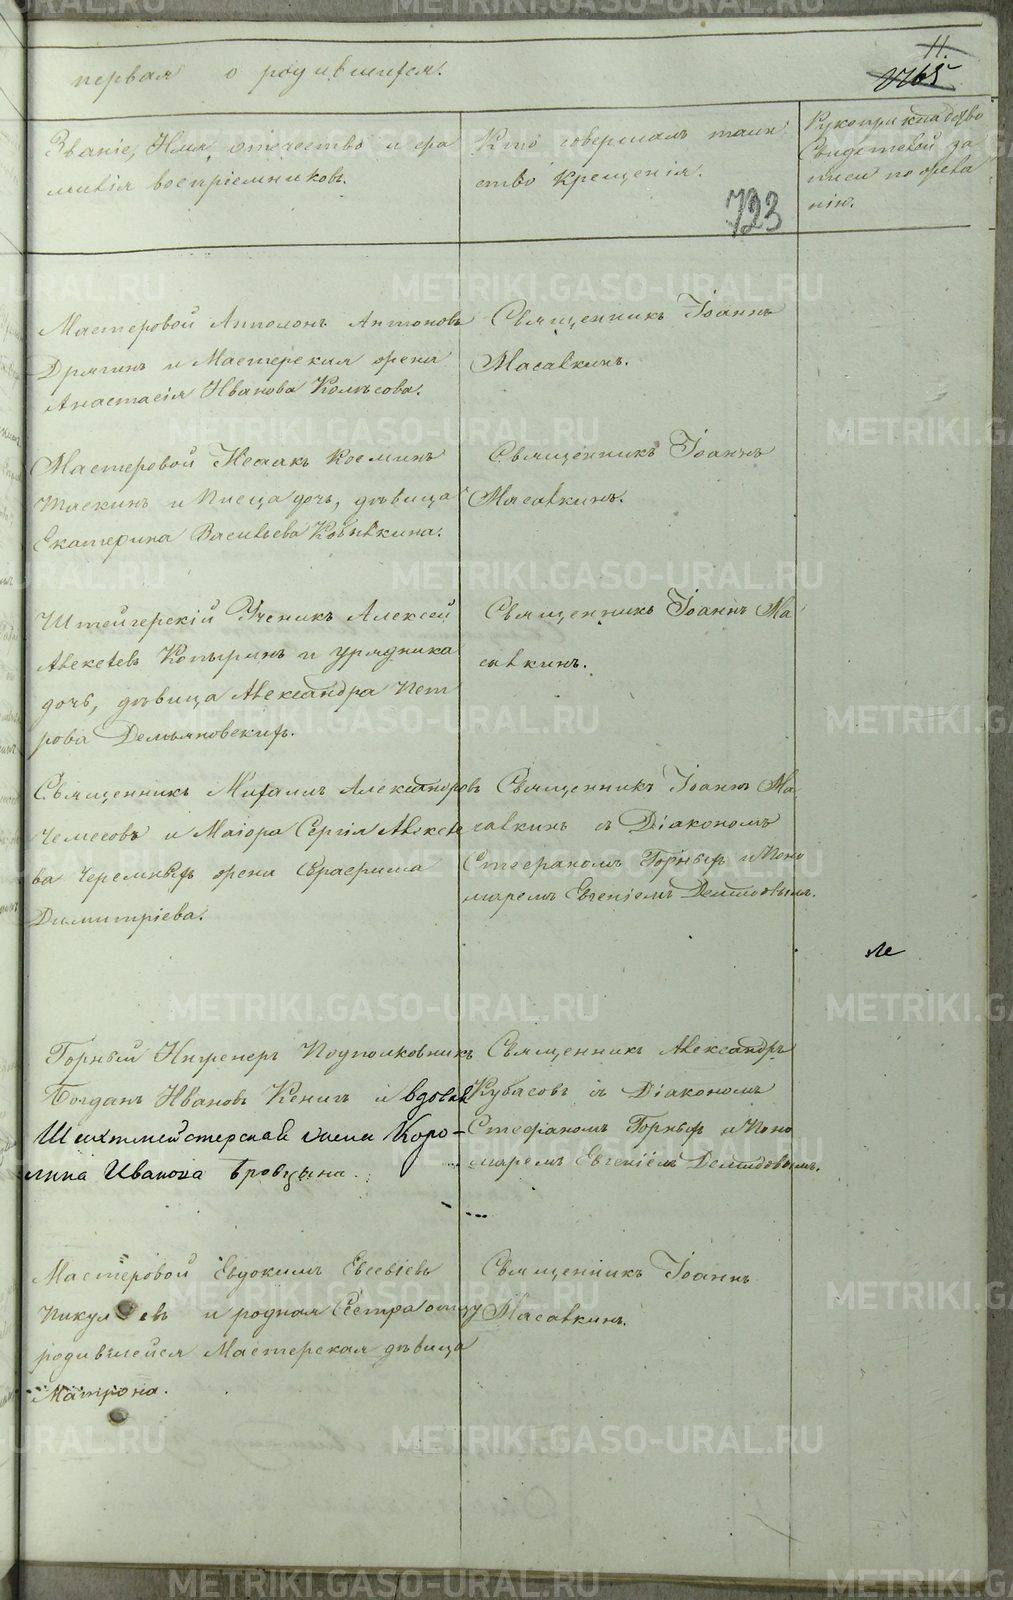 первая о родившихся.
11.
723
Званіе, Имя, отечество и фа
милія воспріемниковъ.
Кто совершалъ таин
ство Крещенія.
Рукоприкладство
Свидетелей за
писи по жела
нію.
Мастеровой Апполонъ Антоновъ
Дрягинъ и Мастерская жена
Анастасія Иванова Колѣсова.
Священникъ Іоаннъ
Масалкинъ.
Мастеровой Исаакъ Косминъ
Шаскинъ и Писца дочь, дѣвица
Екатерина Васильева Кобылкина.
Священникъ Іоаннъ
Масалкинъ.
Штейгерскій Ученикъ Алексей
Алексеевъ Копыринъ и урядника
дочь, дѣвица Александра Пет
рова Демьяновскихъ.
Священникъ Іоаннъ Ма
салкинъ.
Священникъ Михаилъ Александровъ
Чемесовъ и Маіора Сергія Алексе
ва Черемныхъ жена Серафима
Димитріева.
Священникъ Іоаннъ Ма
салкинъ съ Діакономъ
Стефаномъ Горныхъ и Поно
маремъ Евгеніемъ Демидовымъ.
Горный Инженеръ Подполковникъ
Богданъ Ивановъ Кенигъ и вдовая
Шихтмейстерская жена Каро-
лина Иванова Бровцына.
Священникъ Александръ
Кубасовъ съ Діакономъ
Стефаномъ Горныхъ и Поно
маремъ Евгеніемъ Демидовымъ.
Мастеровой Евдокимъ Евсевіевъ
Пикулевъ и родная Сестра отцу
родившейся Мастерская дѣвица
Матрона.
Священникъ Іоаннъ
Масалкинъ.
METRIKI.GASO-URAL.RU